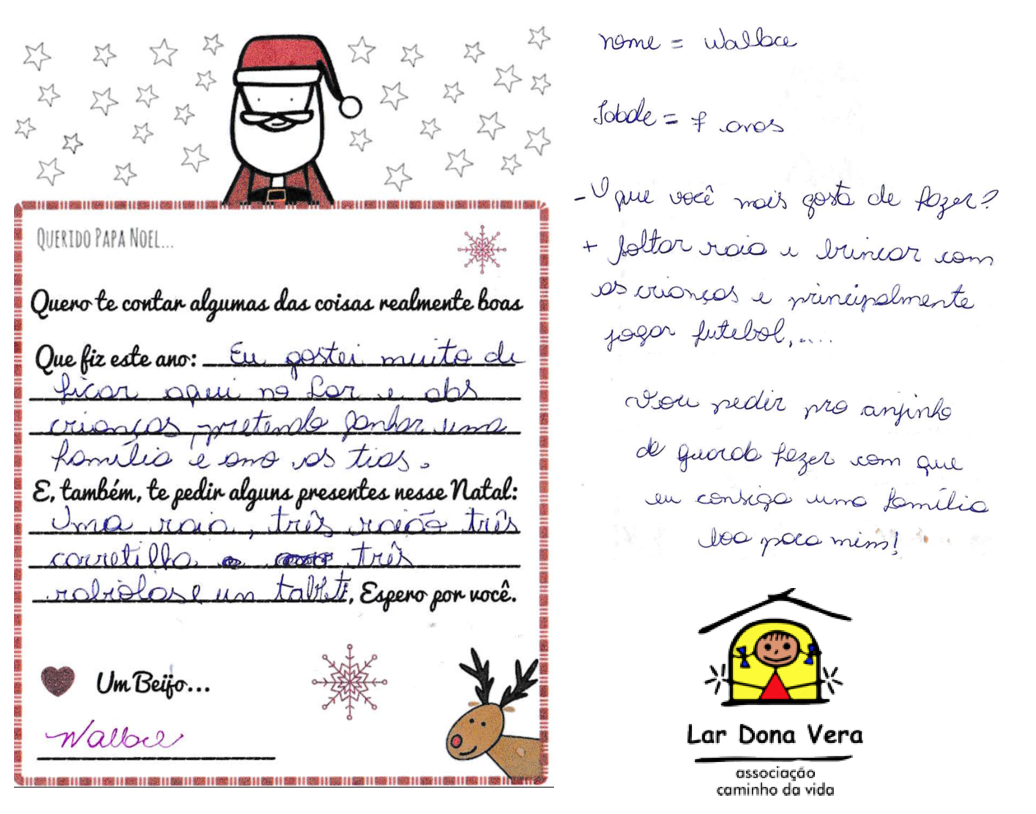 QUERIDO PAPA NOEL...
Quero te contar algumas das coisas realmente boas
Que fiz este ano: Eu gostei muito de
ficar aqui no Lar e das
crianças, pretendo ganhar uma
família e amo as tias.
E, também, te pedir alguns presentes nesse Natal:
Uma raia, três raião três
carretilha três
rabiolas e um tablet, Espero por você.
Um Beijo...
Wallace
nome = Wallace
Idade = 7 anos
- O que você mais gosta de fazer?
+ Soltar raia e brincar com
as crianças e principalmente
jogar futebol,....
Vou pedir pro anjinho
da guarda fazer com que
eu consiga uma família
boa para mim!
Lar Dona Vera
associação
caminho da vida